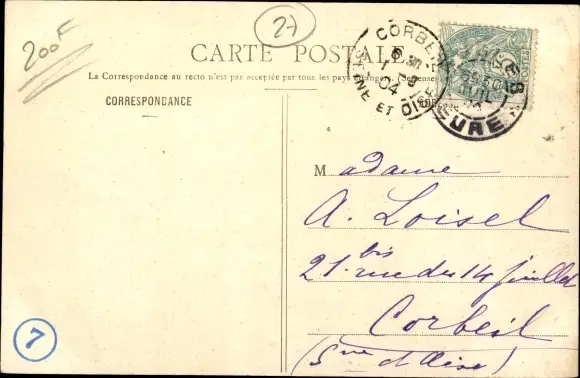 200F
27
CARTE POSTALE
La Correspondance au recto n'est pas acceptée par tous les pays étrangers
CORRESPONDANCE
CORBEIL
1
8
04
SEINE ET OISE
EURE
Madame
A. Loisel
21 bis rue du 14 juillet
Corbeil
(Sne et Oise)
7